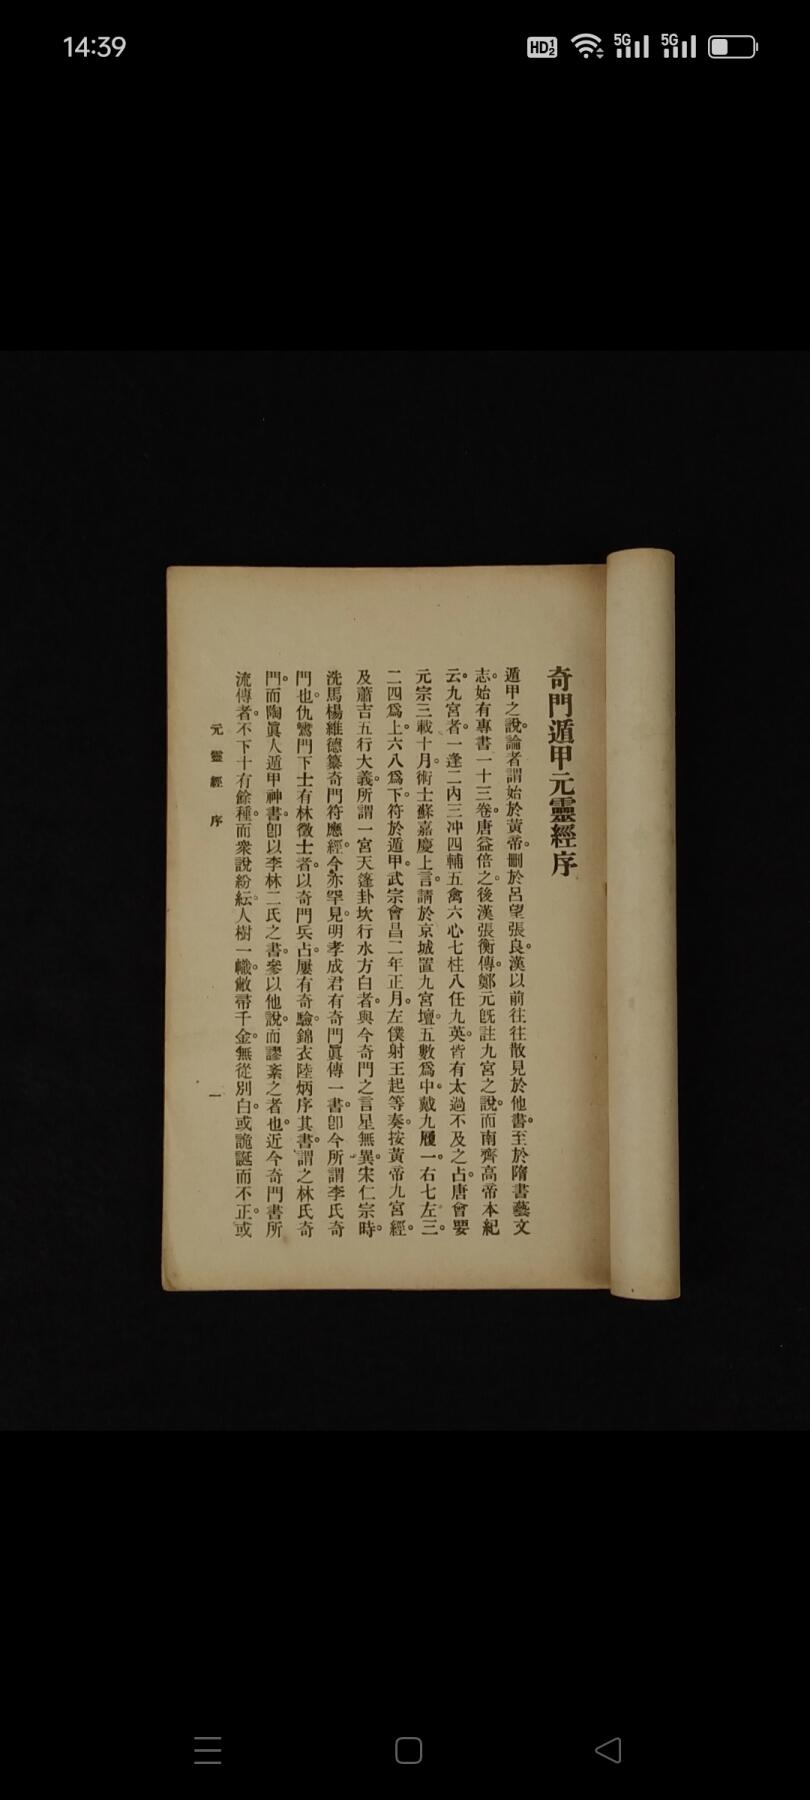 14:39
HD 1 2
5G
5G
奇門遁甲元靈經序
遁甲之說。論者謂始於黃帝。刪於呂望張良。漢以前往往散見於他書。至於隋書藝文
志。始有專書一十三卷。唐益倍之。後漢張衡傳。鄭元旣註九宮之說。而南齊高帝本紀
云。九宮者。一逢二內三冲四輔五禽六心七柱八任九英。皆有太過不及之占。唐會要
元宗三載十月。術士蘇嘉慶上言。請於京城置九宮壇。五數爲中。戴九履一。右七左三。
二四爲上。六八爲下。符於遁甲。武宗會昌二年正月。左僕射王起等奏。按黃帝九宮經。
及蕭吉五行大義。所謂一宮天蓬卦坎行水方白者。與今奇門之言星無異。宋仁宗時。
洗馬楊維德纂奇門符應經。今亦罕見。明孝成君有奇門眞傳一書。卽今所謂李氏奇
門也。仇鸞門下士有林徵士者。以奇門兵占。屢有奇驗。錦衣陸炳序其書。謂之林氏奇
門。而陶眞人遁甲神書。卽以李林二氏之書。參以他說。而謬紊之者也。近今奇門書所
流傳者。不下十有餘種。而衆說紛紜。人樹一幟。敝帚千金。無從別白。或詭誕而不正。或
元靈經 序 一